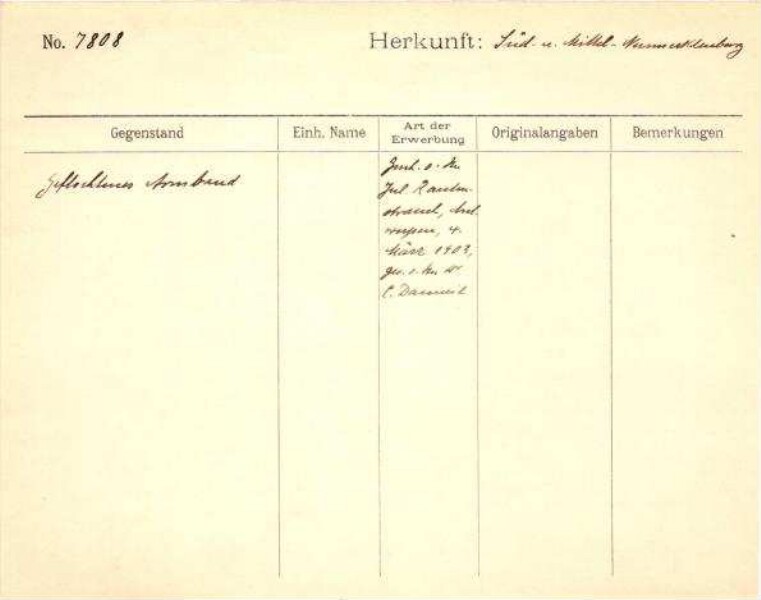 No. 7808
Herkunft: Süd- u. Mittel-Neumecklenburg
Gegenstand
Einh. Name
Art der Erwerbung
Originalangaben
Bemerkungen
Geflochtenes Armband
Gesch. v. Hn
Jul Rauten-
strauch, Ant
werpen, 4.
März 1903,
ges. v. Hn Dr